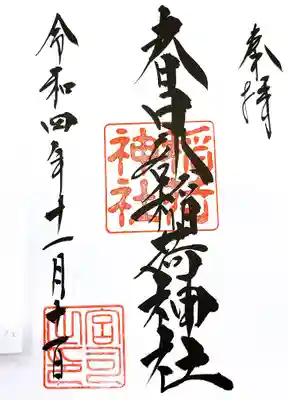 奉拝
春日稲荷神社
稲荷神社
令和四年十一月十一日
宮司之印